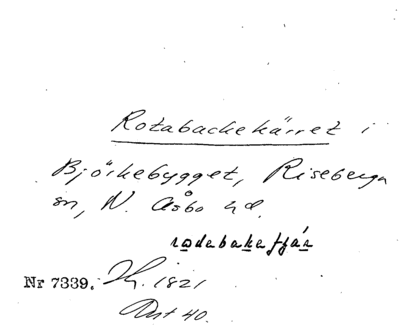 Rotabackekärret i
Björkebygget, Riseberga
sn, N. Åsbo hd.
rodebakafjär
Nr 7339. 1821
Art 40.